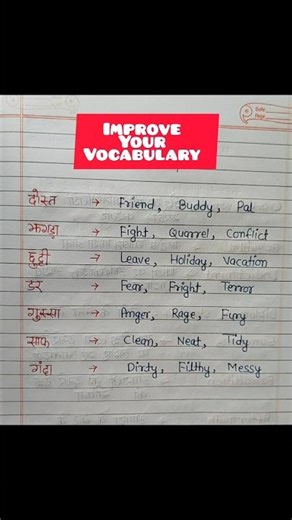 Date
Page
IMPROVE
YOUR
VOCABULARY
दोस्त → Friend, Buddy, Pal
झगड़ा → Fight, Quarrel, Conflict
छुट्टी → Leave, Holiday, Vacation
डर → Fear, Fright, Terror
गुस्सा → Anger, Rage, Fury
साफ → Clean, Neat, Tidy
गंदा → Dirty, Filthy, Messy